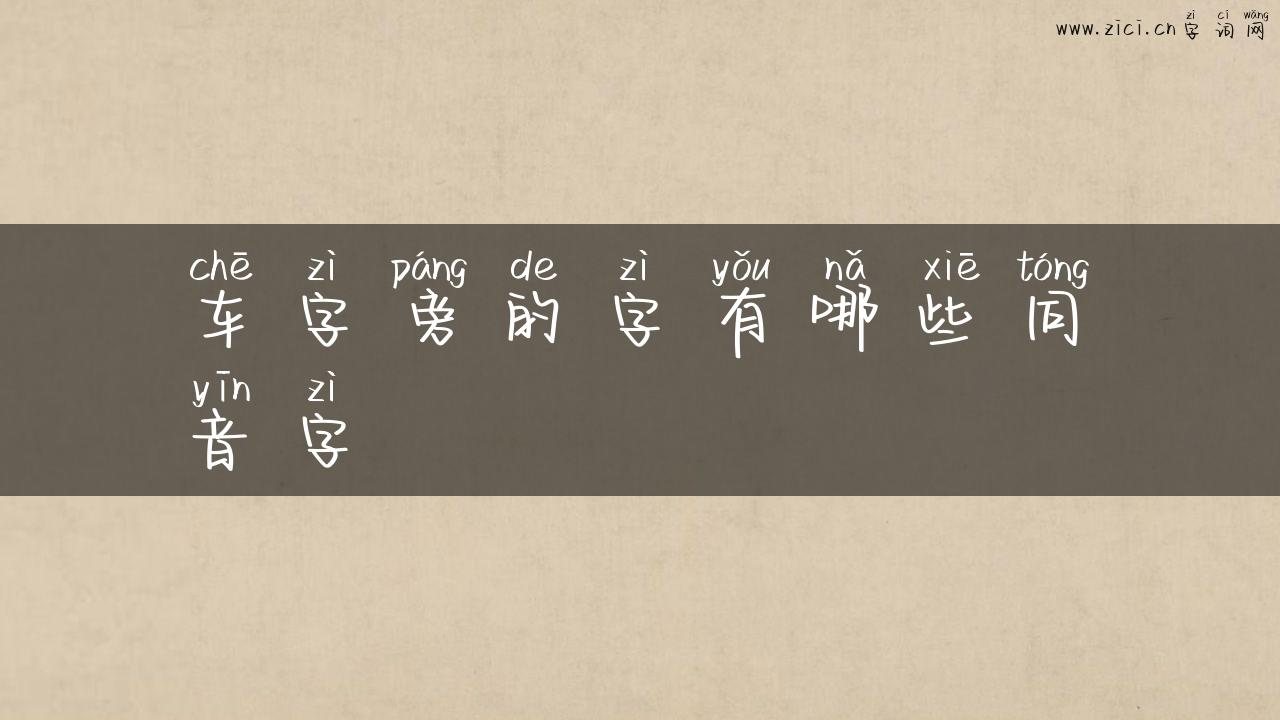 zì cí wǎng
www.zici.cn 字词网
chē zì páng de zì yǒu nǎ xiē tóng
车字旁的字有哪些同
yīn zì
音字